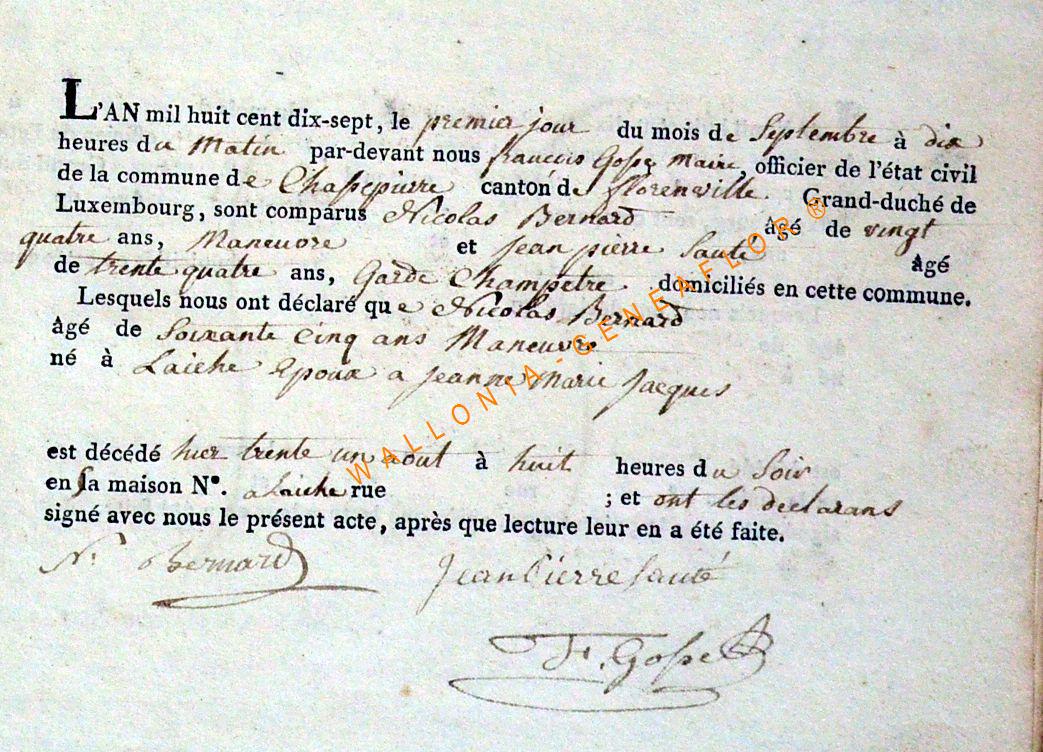 L'AN mil huit cent dix-sept, le premier jour du mois de Septembre à dix
heures du Matin par-devant nous françois Gosse Maire, officier de l'état civil
de la commune de Chassepierre canton de florenville. Grand-duché de
Luxembourg, sont comparus Nicolas Bernard, âgé de vingt
quatre ans, Maneuvre et Jean pierre Sauté âgé
de trente quatre ans, Garde Champetre. domiciliés en cette commune.
Lesquels nous ont déclaré que Nicolas Bernard
âgé de Soixante Cinq ans Maneuvre
né à Laiche Epoux a Jeanne Marie Jacques
est décédé hier trente un aout à huit heures du Soir
en sa maison N°. a Laiche rue ; et ont les declarans
signé avec nous le présent acte, après que lecture leur en a été faite.
N. Bernard Jean Pierre Sauté
F. Gosse
WALLONIA-GENEAFLOR®